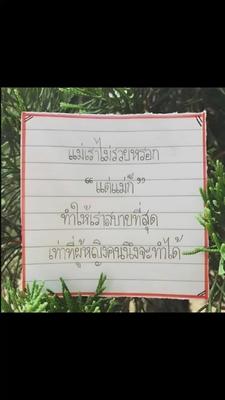 แม่เราไม่รวยหรอก
“แต่แม่ก็”
ทำให้เราสบายที่สุด
เท่าที่ผู้หญิงคนนึงจะทำได้